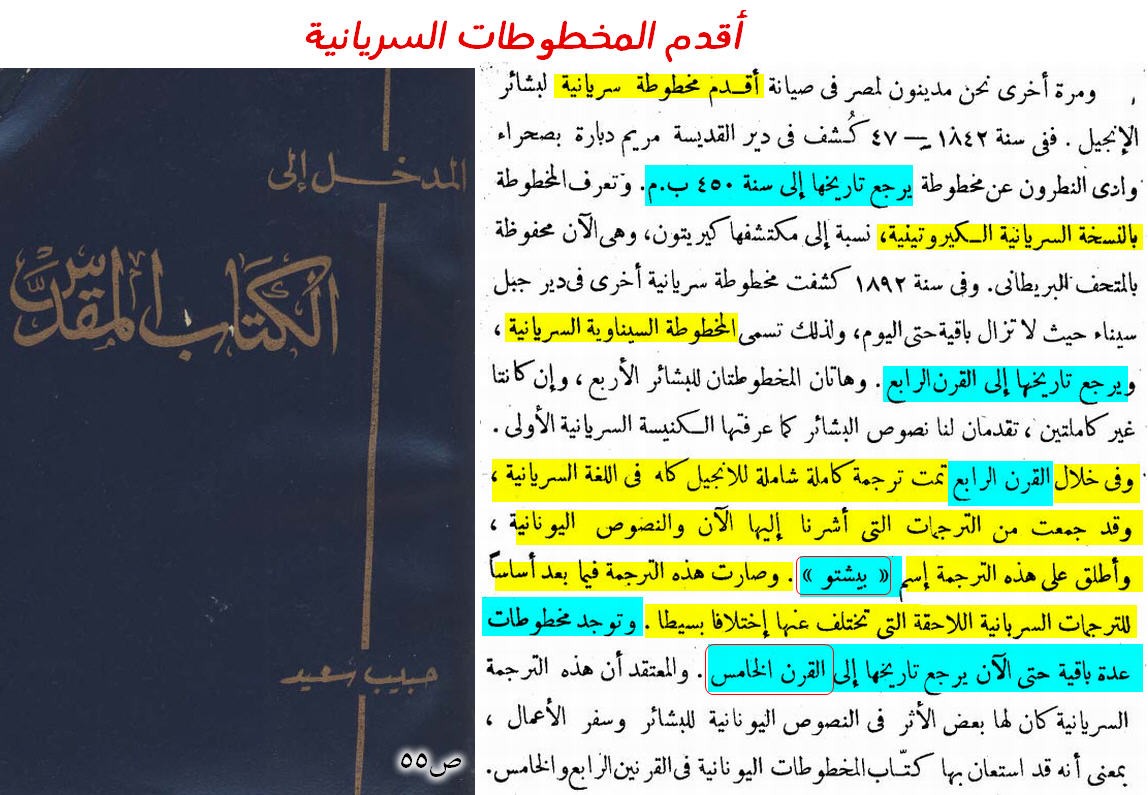 أقدم المخطوطات السريانية
المدخل إلى
الكتاب المقدس
حبيب سعيد
ص٥٥
ومرة أخرى نحن مدينون لمصر فى صيانة أقدم مخطوطة سريانية لبشائر
الإنجيل . ففى سنة ١٨٤٢ — ٤٧ كُشف فى دير القديسة مريم دبارة بصحراء
وادى النطرون عن مخطوطة يرجع تاريخها إلى سنة ٤٥٠ ب.م. وتعرف المخطوطة
بالنسخة السريانية الكيروتينية، نسبة إلى مكتشفها كيريتون، وهى الآن محفوظة
بالمتحف البريطانى. وفى سنة ١٨٩٢ كشفت مخطوطة سريانية أخرى فى دير جبل
سيناء حيث لا تزال باقية حتى اليوم، ولذلك تسمى المخطوطة السيناوية السريانية ،
ويرجع تاريخها إلى القرن الرابع . وهاتان المخطوطتان للبشائر الأربع ، وإن كانتا
غير كاملتين ، تقدمان لنا نصوص البشائر كما عرفتها الكنيسة السريانية الأولى .
وفى خلال القرن الرابع تمت ترجمة كاملة شاملة للانجيل كله فى اللغة السريانية ،
وقد جمعت من الترجمات التى أشرنا إليها الآن والنصوص اليونانية ،
وأطلق على هذه الترجمة إسم « بيشتو » . وصارت هذه الترجمة فيما بعد أساساً
للترجمات السريانية اللاحقة التى تختلف عنها إختلافا بسيطا . وتوجد مخطوطات
عدة باقية حتى الآن يرجع تاريخها إلى القرن الخامس . والمعتقد أن هذه الترجمة
السريانية كان لها بعض الأثر فى النصوص اليونانية للبشائر وسفر الأعمال ،
بمعنى أنه قد استعان بها كتّاب المخطوطات اليونانية فى القرنين الرابع والخامس.